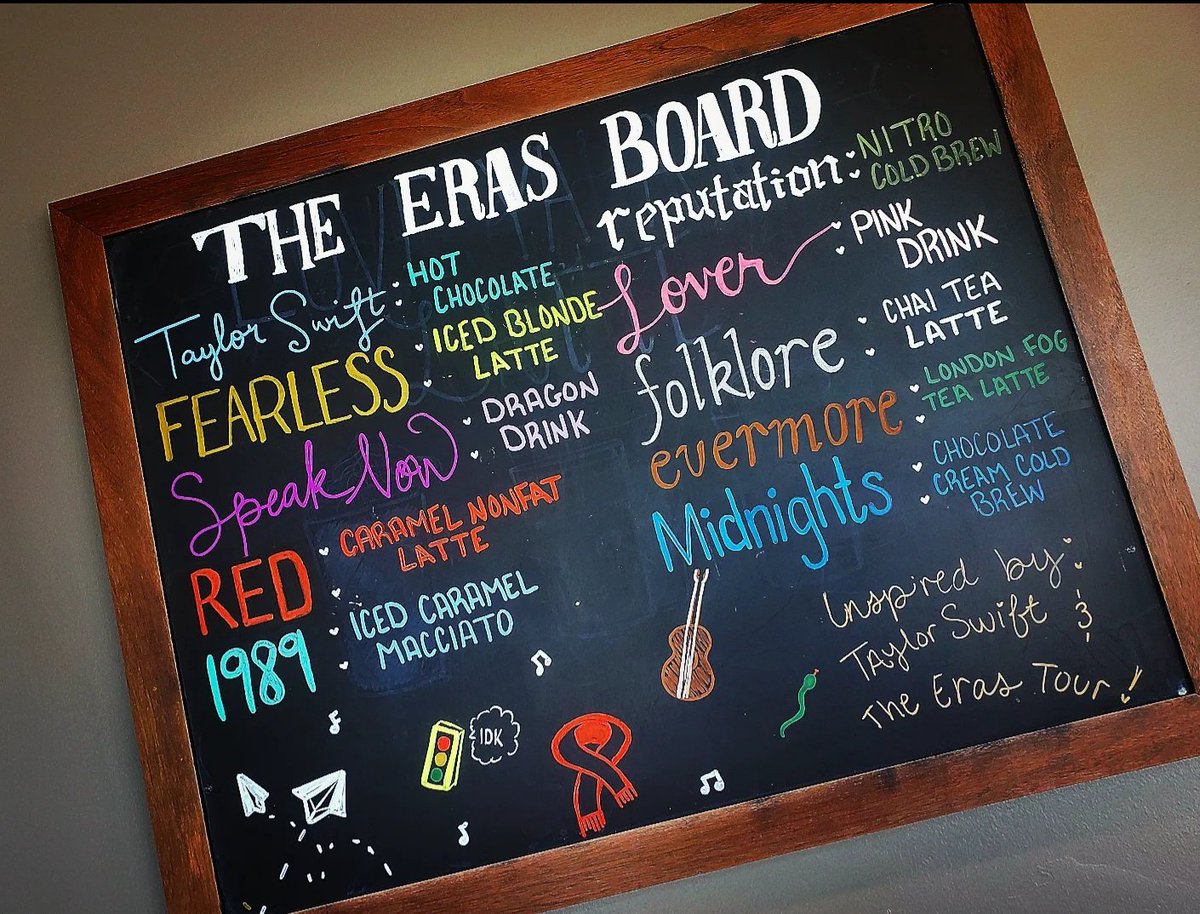 THE ERAS BOARD
Taylor Swift : HOT
CHOCOLATE
FEARLESS : ICED BLONDE
LATTE
Speak Now : DRAGON
DRINK
RED : CARAMEL NONFAT
LATTE
1989 : ICED CARAMEL
MACCIATO
reputation : NITRO
COLD BREW
Lover : PINK
DRINK
folklore : CHAI TEA
LATTE
evermore : LONDON FOG
TEA LATTE
Midnights : CHOCOLATE
CREAM COLD
BREW
IDK
Inspired by:
Taylor Swift &
The Eras Tour!